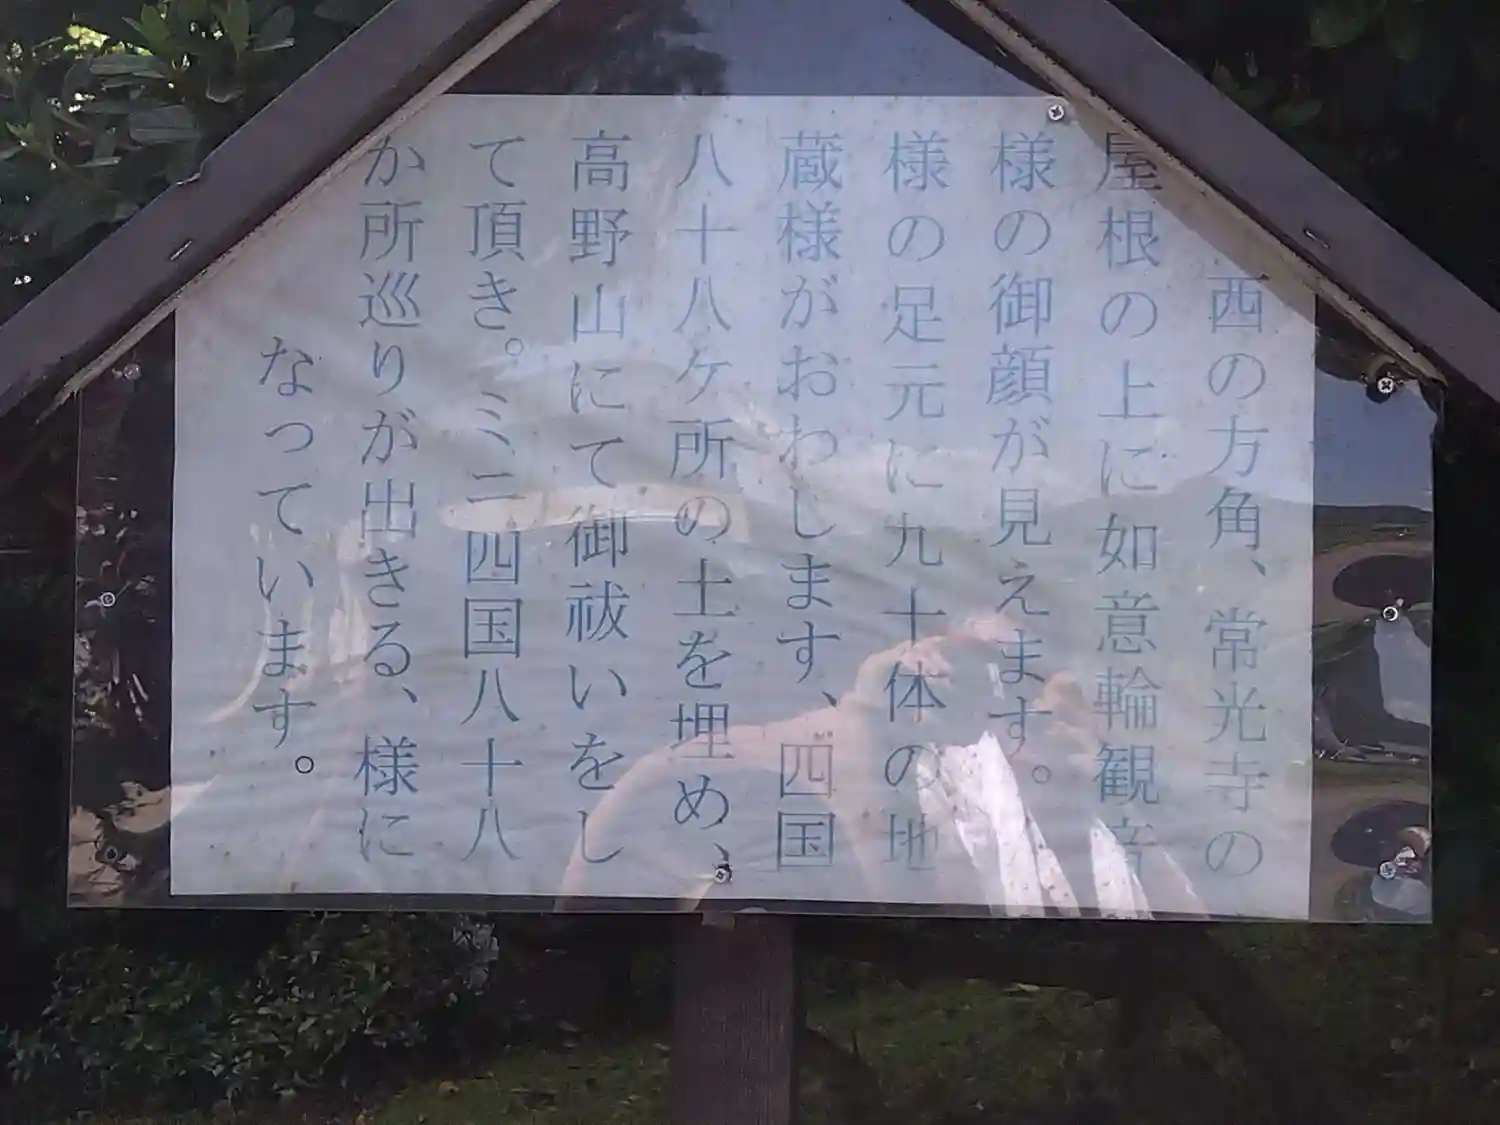 西の方角、常光寺の
屋根の上に如意輪観音
様の御顔が見えます。
様の足元に九十体の地
蔵様がおわします、四国
八十八ケ所の土を埋め、
高野山にて御祓いをし
て頂き。ミニ四国八十八
か所巡りが出きる、様に
なっています。